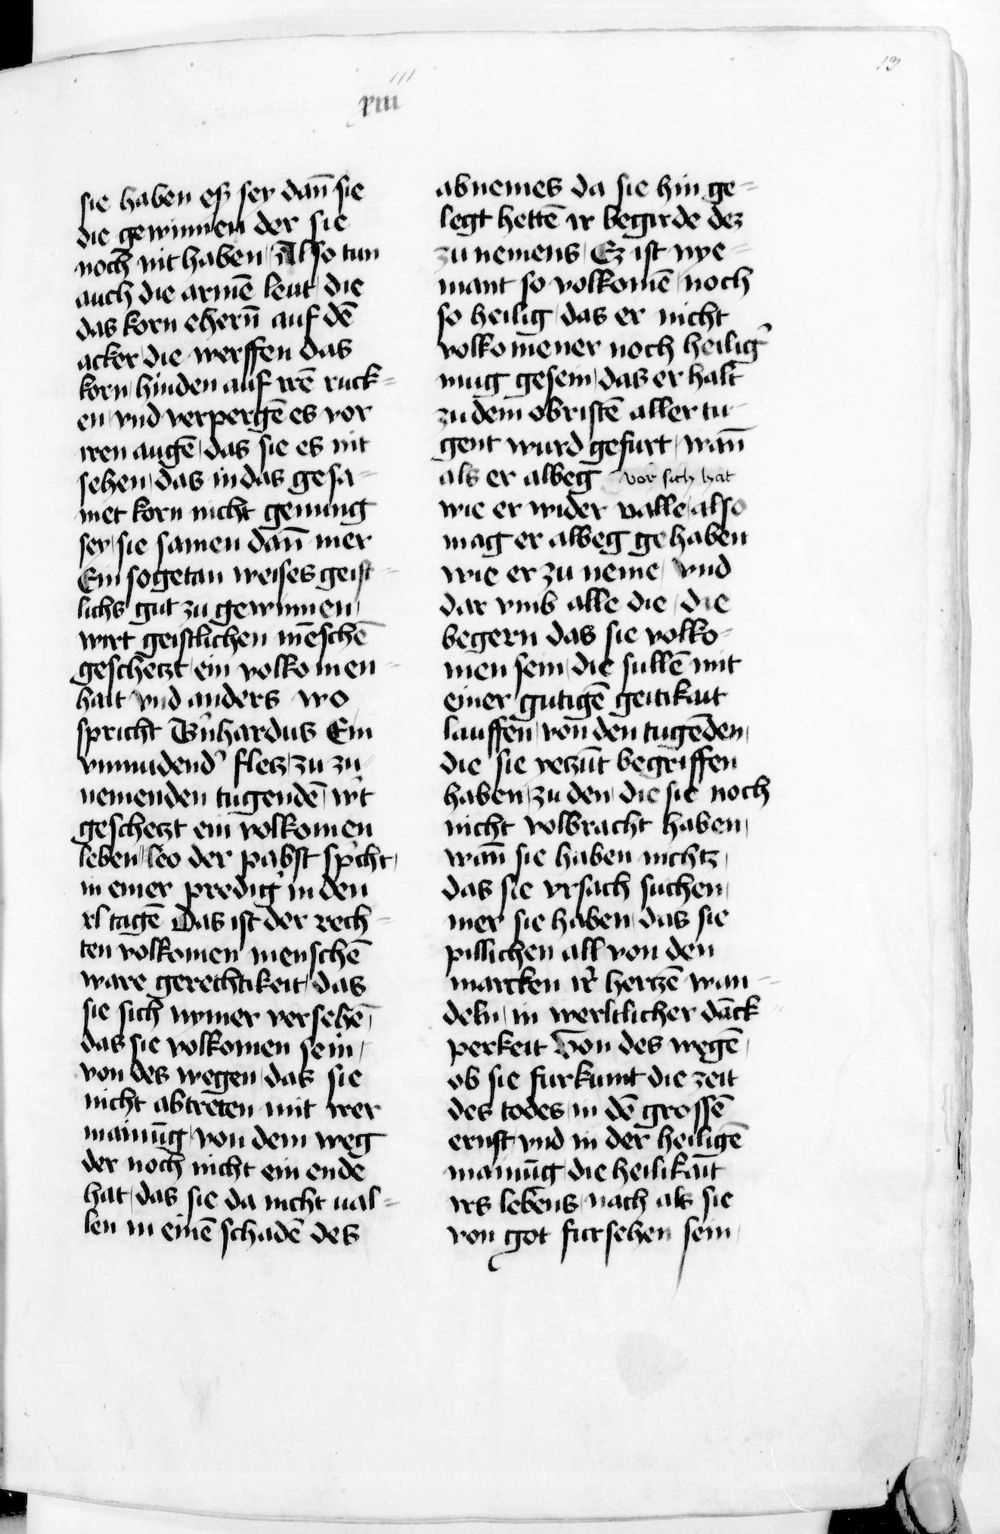 13
xiii
sie haben eß sey dan̄ sie
die gewinnen der sie
noch nit haben / Also tun
auch die armē leut / die
das korn ehern̄ auf dē
acker / die werffen das
korn / hinden auf irē ruck=
en / vnd verpergē es vor
iren augē / das sie es nit
sehen / das in das gesa=
met korn nicht genung
sey / sie samen dan̄ mer
Ein sogetan weises geist=
lichs gut zu gewinnen /
wirt geistlichen mēschē
geschetzt / ein volkomen=
hait vnd anders wo
spricht Bn̄hardus Ein
vnmudend' fleiz / zu zu=
nemenden tugendē / w't
geschetzt ein volkomen
leben / leo der pabst sp'cht /
in einer predig' in den
xl tagē Das ist der rech=
ten volkomen menschē
ware gerechtikeit / das
sie sich nymer versehē /
das sie volkomen sein /
von des wegen / das sie
nicht abtreten mit irer
mainūg / von dem weg
der noch nicht ein ende
hat / das sie da nicht ual=
len in einē schadē des
abnemes da sie hin ge=
legt hettē ir begirde dez
zu nemens / Ez ist nye=
mant so volkomē / noch
so heilig / das er nicht
volkomener noch heilig'
mug gesein / das er halt
zu dem obristē aller tu=
gent wurd gefurt / wan̄
als er albeg vor sich hat
wie er wider ualle / also
mag er albeg gehaben
wie er zu neme / vnd
dar vmb alle die / die
begern das sie volko=
men sein / die sullē mit
einer gutigē geitikait
lauffen / von den tugēden /
die sie yetzūt begriffen
haben / zu den / die sie noch
nicht volbracht haben /
wan̄ sie haben nichtz /
das sie vrsach suchen /
mer sie haben / das sie
pillichen all von den
marcken ir' hertzē wan=
deln / in werltlicher dāck=
perkeit Von des wegē /
ob sie furkumt die zeit
des todes / in dē grossē
ernst / vnd in der heiligē
mainūg / die heilikait
irs lebens / nach als sie
von got fursehen sein /